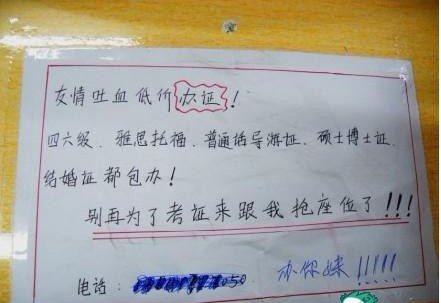 友情吐血低价办证!
四六级、雅思托福、普通话导游证、硕士博士证、
结婚证都包办!
别再为了考证来跟我抢座位了!!!
电话: 050
办你妹!!!!!